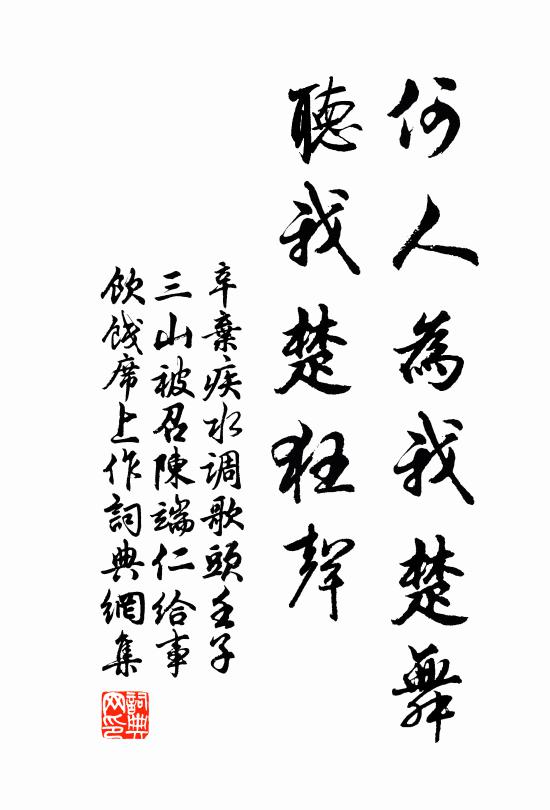 何人為我楚舞
聽我楚狂聲
辛棄疾水调歌頭壬子
三山被召陳端仁給事
飲餞席上作詞典網集
詞典网印